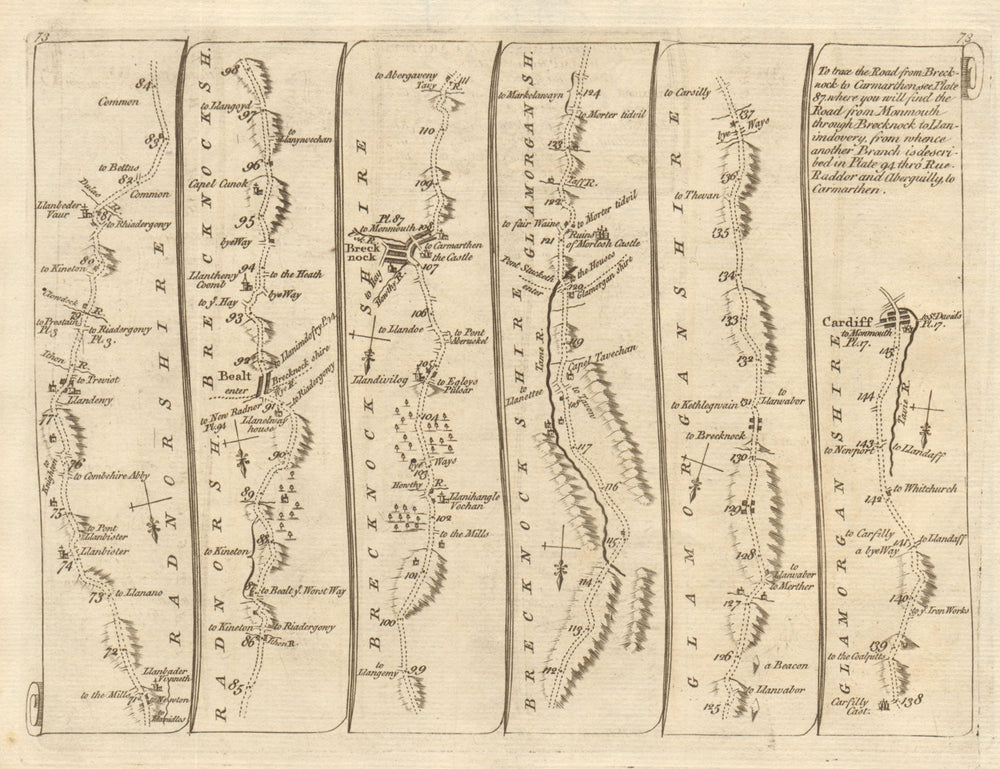 73
73
84
Common
83
to Bettus
82
Dulas
Common
Llanbeder
Vaur
R.
81
to Rhiadergowy
80
to Kineton
Clowdock
R.
79
to Prestain
Pl.3
to Riadergowy
Pl.3.
Ithon
R.
to Treviot
Llandewy
77
Knighton
76
to Combehire Abby
75
to Pont
Llanbister
Llanbister
74
73
to Llanano
72
Llanbader
Vynneth
to the Mills
Newton
RADNORSHIRE
98
to Llangoyd
97
to
Llanynvechan
96
Capel Cunok
95
bye Way
94
to the Heath
Llantheny
Coomb
bye Way
to yͤ. Hay
93
92
to Llanimdofry P.94
Bealt
enter
Brecknock shire
Wye R.
to Riadergowy
to New Radner
Pl.94
91
Llanelway
house
90
89
88
to Kineton
87
to Bealt yͤ. Worst Way
to Kineton
to Riadergowy
86
Ithon R.
85
RADNORSH.
BRECKNOCKSH.
to Abergaveny
111
Taay R.
110
109
Pl.87
to Monmouth
108
Breck
nock
to Carmarthen
the Castle
107
to Hay
Howthy R.
106
to Llandoe
to Pont
Aberuskel
105
Llandivilog
to Egloys
Pilsar
104
bye Ways
103
Howthy R.
Llanihangle
Vochan
102
to the Mills
101
100
to
Llangemy
99
BRECKNOCKSHIRE
to Markelawayn
124
to Morter tidvil
123
Taff R.
122
to fair Waine
to Morter tidvil
121
Ruins
of Morlash Castle
Pont Stucketh
the Houses
enter
120
Glamorgan shire
119
Tame R.
Capel Tavechan
to
Llanettee
118
117
116
115
114
113
112
BRECKNOCKSHIRE
GLAMORGANSH.
to Carsilly
137
bye Ways
136
to Thevan
135
134
133
132
to
Llanvabor
131
to Kethlegwain
to Brecknock
130
129
128
to
Llanvabor
to Merther
127
126
a Beacon
to Llanvabor
125
GLAMORGANSHIRE
To trace the Road from Breck-
nock to Carmarthen see Plate
87, where you will find the
Road from Monmouth
through Brecknock to Llan-
imdovery, from whence
another Branch is descri-
bed in Plate 94 thro' Rue-
Raddor and Aberguilly, to
Carmarthen.
Cardiff
to Sᵗ. Davids
Pl.17.
to Monmouth
Pl.17.
145
144
Tavie R.
143
to Newport
to Llandaff
to Whitchurch
142
to Carfilly
a bye Way
141
to Llandaff
140
to yͤ. Iron Works
139
to the Coalpitts
Carfilly
Cast.
138
GLAMORGANSHIRE